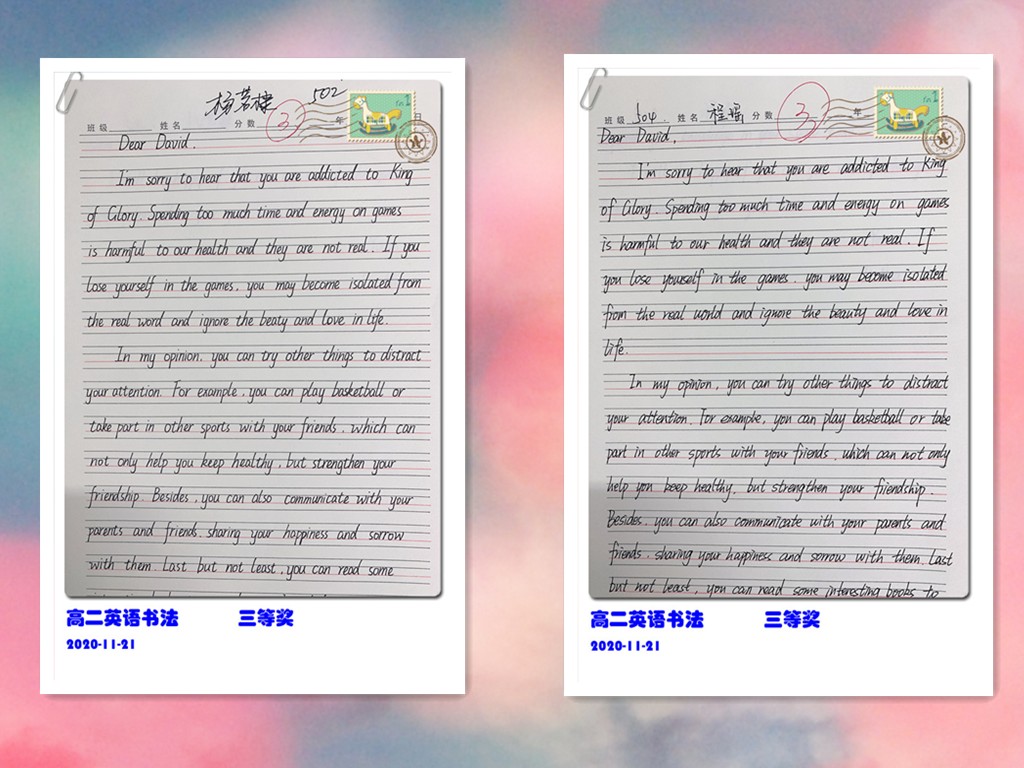 杨若棣 502
班级 姓名 分数 3 年 日
Dear David.
I'm sorry to hear that you are addicted to King
of Glory. Spending too much time and energy on games
is harmful to our health and they are not real. If you
lose yourself in the games, you may become isolated from
the real word and ignore the beaty and love in life.
In my opinion, you can try other things to distract
your attention. For example, you can play basketball or
take part in other sports with your friends, which can
not only help you keep healthy, but strengthen your
friendship. Besides, you can also communicate with your
parents and friends, sharing your happiness and sorrow
with them. Last but not least, you can read some
高二英语书法 三等奖
2020-11-21
班级 504. 姓名 程瑶 分数 3 年
Dear David,
I'm sorry to hear that you are addicted to King
of Glory. Spending too much time and energy on games
is harmful to our health and they are not real. If
you lose yourself in the games, you may become isolated
from the real world and ignore the beauty and love in
life.
In my opinion, you can try other things to distract
your attention. For example, you can play basketball or take
part in other sports with your friends, which can not only
help you keep healthy, but strengthen your friendship.
Besides, you can also communicate with your parents and
friends, sharing your happiness and sorrow with them. Last
but not least, you can read some interesting books to
高二英语书法 三等奖
2020-11-21